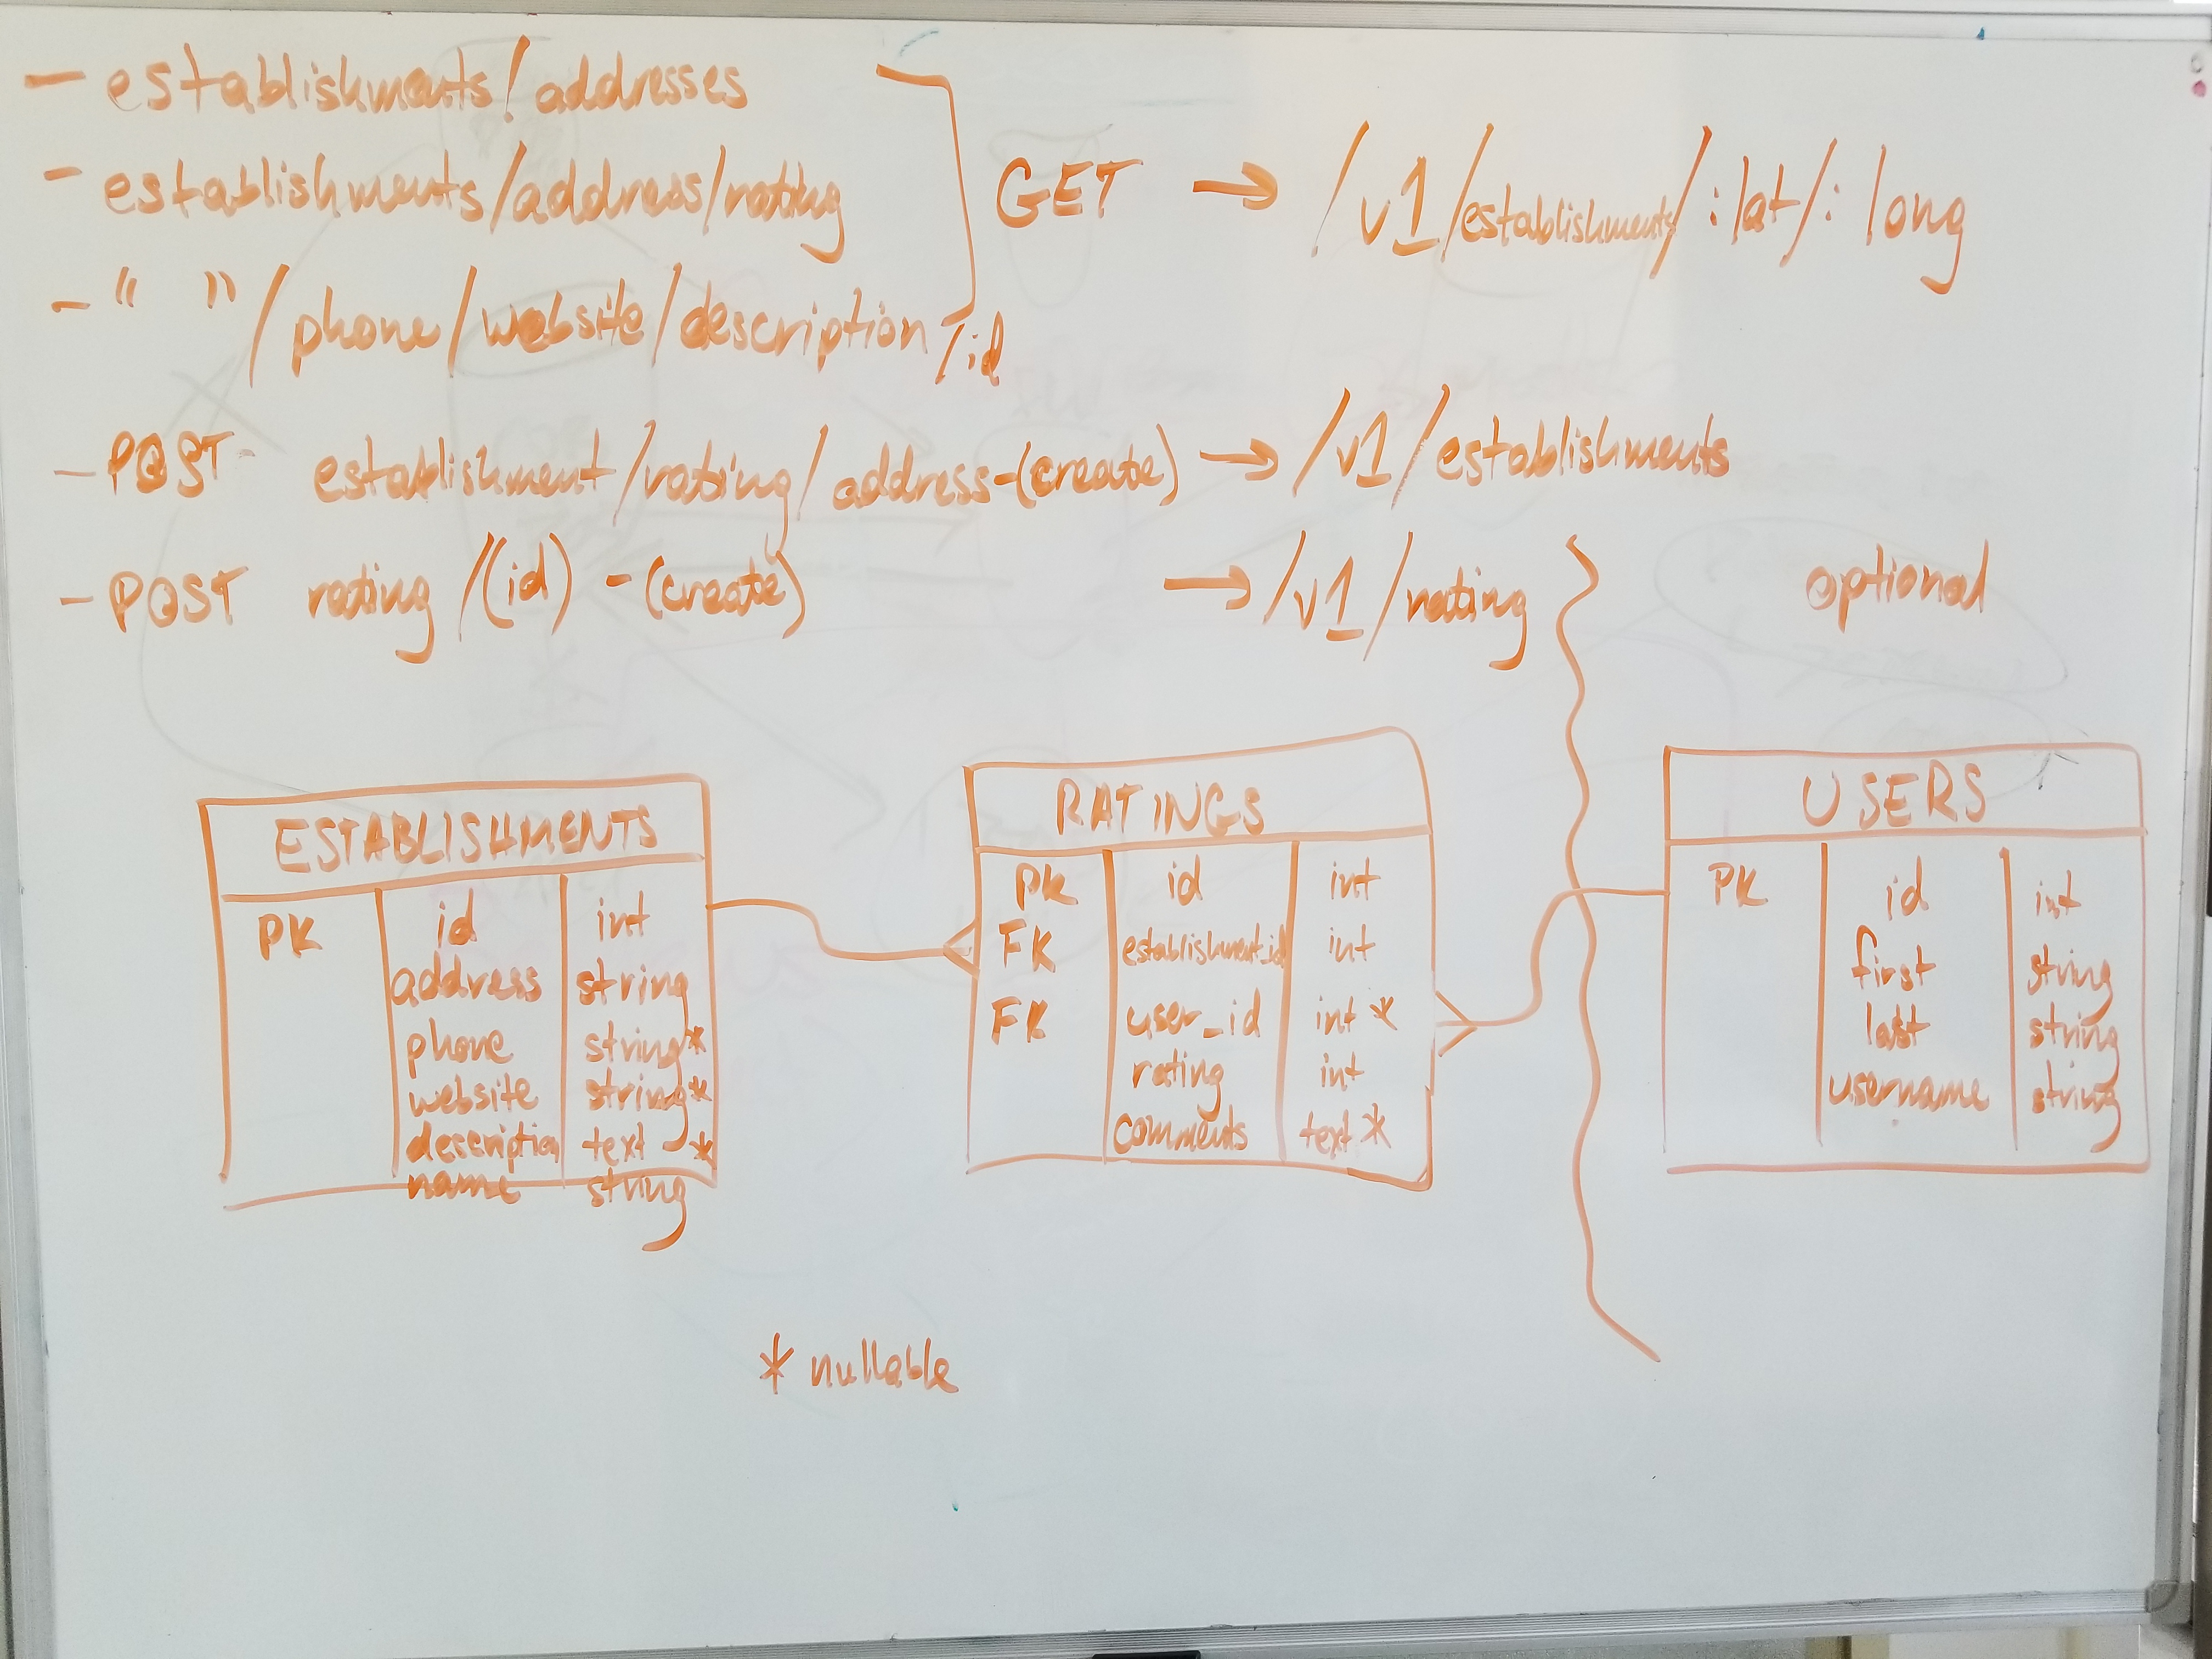 - establishments/addresses
- establishments/address/rating
- " " /phone/website/description/id
GET → /v1/establishments/:lat/:long
- POST establishment/rating/address-(create) → /v1/establishments
- POST rating/(id) -(create) → /v1/rating
optional
ESTABLISHMENTS
PK id int
address string
phone string*
website string*
description text *
name string
RATINGS
PK id int
FK establishment_id int
FK user_id int *
rating int
comments text *
USERS
PK id int
first string
last string
username string
* nullable